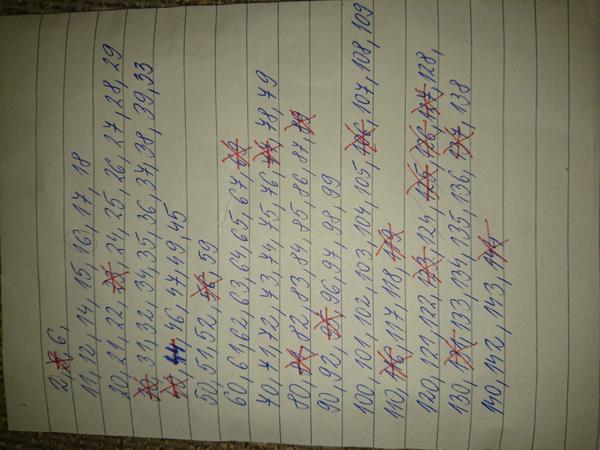 2, 6,
11, 12, 14, 15, 16, 17, 18
20, 21, 22, 23, 24, 25, 26, 27, 28, 29
30, 31, 32, 34, 35, 36, 37, 38, 39, 33
44, 46, 47, 49, 45
50, 51, 52, 56, 59
60, 61, 62, 63, 64, 65, 67, 69
70, 71, 72, 73, 74, 75, 76, 77, 78, 79
80, 81, 82, 83, 84, 85, 86, 87, 89
90, 92, 95, 96, 97, 98, 99
100, 101, 102, 103, 104, 105, 106, 107, 108, 109
110, 116, 117, 118, 119
120, 121, 122, 123, 124, 125, 126, 127, 128,
130, 131, 133, 134, 135, 136, 137, 138
140, 142, 143,